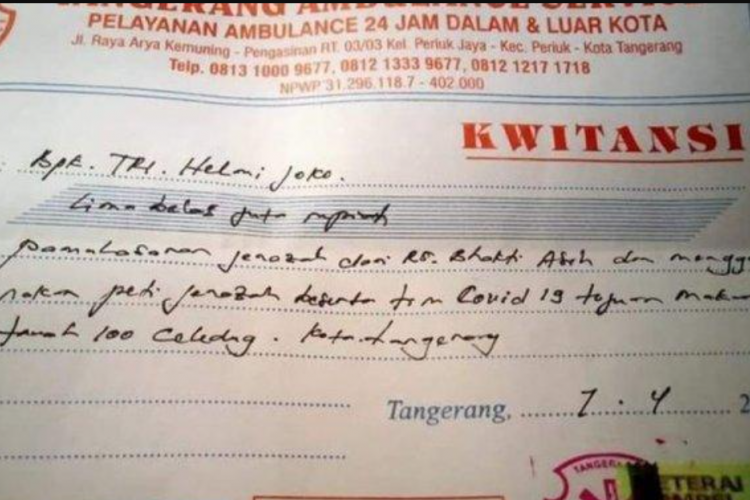 TANGERANG AMBULANCE SERVICE
PELAYANAN AMBULANCE 24 JAM DALAM & LUAR KOTA
Jl. Raya Arya Kemuning - Pengasinan RT. 03/03 Kel. Periuk Jaya - Kec. Periuk - Kota Tangerang
Telp. 0813 1000 9677, 0812 1333 9677, 0812 1217 1718
NPWP 31.296.118.7 - 402.000
KWITANSI
: Bpk. TRI. Helmi Joko.
Lima belas juta rupiah
pamulasaran jenazah dari RS. Bhakti Asih dan menggu
nakan peti jenazah beserta tim Covid 19 tujuan Maka
tanah 100 Celedug. Kota tangerang
Tangerang, 7. 4 2
TANGERA
METERAI